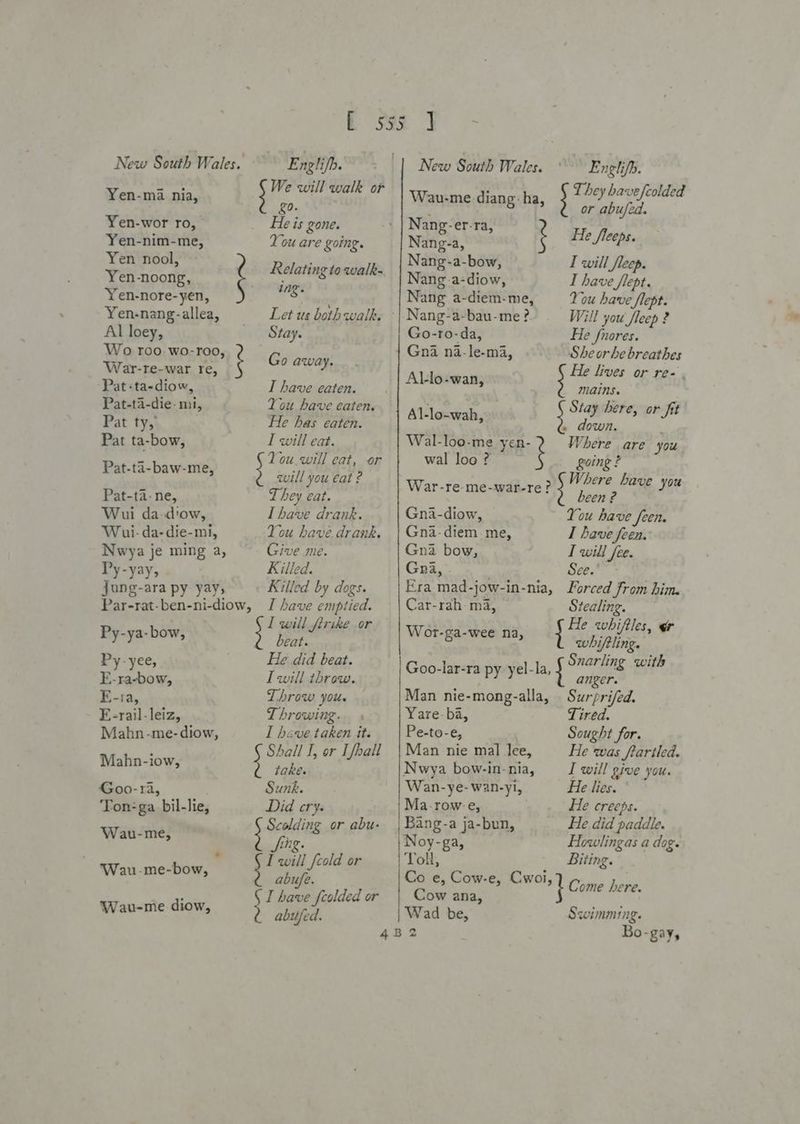 [ 555 ]
New South Wales. Engliſh.
Yen-mā nia, { We will walk or
go.
Yen-wor ro, He is gone.
Yen-nim-me, You are going.
Yen nool,
Yen-noong, } Relating to walk-
Yen-nore-yen, ing.
Yen-nang-allea, Let us both walk.
Al loey, Stay.
Wo roo-wo-roo, } Go away.
War-re-war re,
Pat-ta-diow, I have eaten.
Pat-tā-die-mi, You have eaten.
Pat ty, He has eaten.
Pat ta-bow, I will eat.
Pat-tā-baw-me, { You will eat, or
will you eat ?
Pat-tā-ne, They eat.
Wui da-diow, I have drank.
Wui-da-die-mi, You have drank.
Nwya je ming a, Give me.
Py-yay, Killed.
Jung-ara py yay, Killed by dogs.
Par-rat-ben-ni-diow, I have emptied.
Py-ya-bow, { I will ſtrike or
beat.
Py-yee, He did beat.
E-ra-bow, I will throw.
E-ra, Throw you.
E-rail-leiz, Throwing.
Mahn-me-diow, I have taken it.
Mahn-iow, { Shall I, or I ſhall
take.
Goo-rā, Sunk.
Ton-ga bil-lie, Did cry.
Wau-me, { Scolding or abu-
ſing.
Wau-me-bow, { I will ſcold or
abuſe.
Wau-me diow, { I have ſcolded or
abuſed.
New South Wales. Engliſh.
Wau-me diang-ha, { They have ſcolded
or abuſed.
Nang-er-ra, } He ſleeps.
Nang-a,
Nang-a-bow, I will ſleep.
Nang-a-diow, I have ſlept.
Nang a-diem-me, You have ſlept.
Nang-a-bau-me ? Will you ſleep ?
Go-ro-da, He ſnores.
Gnā nā-le-mā, She or he breathes
Al-lo-wan, { He lives or re-
mains.
Al-lo-wah, { Stay here, or ſit
down.
Wal-loo-me yen- } Where are you
wal loo ? going ?
War-re-me-war-re ? { Where have you
been ?
Gnā-diow, You have ſeen.
Gnā-diem-me, I have ſeen.
Gnā bow, I will ſee.
Gnā, See.
Era mad-jow-in-nia, Forced from him.
Car-rah mā, Stealing.
Wor-ga-wee na, { He whiſtles, or
whiſtling.
Goo-lar-ra py yel-la, { Snarling with
anger.
Man nie-mong-alla, Surpriſed.
Yare-bā, Tired.
Pe-to-e, Sought for.
Man nie mal lee, He was ſtartled.
Nwya bow-in-nia, I will give you.
Wan-ye-wan-yi, He lies.
Ma-row-e, He creeps.
Bāng-a ja-bun, He did paddle.
Noy-ga, Howling as a dog.
Toll, Biting.
Co e, Cow-e, Cwoi, } Come here.
Cow ana,
Wad be, Swimming.
4 B 2 Bo-gay,